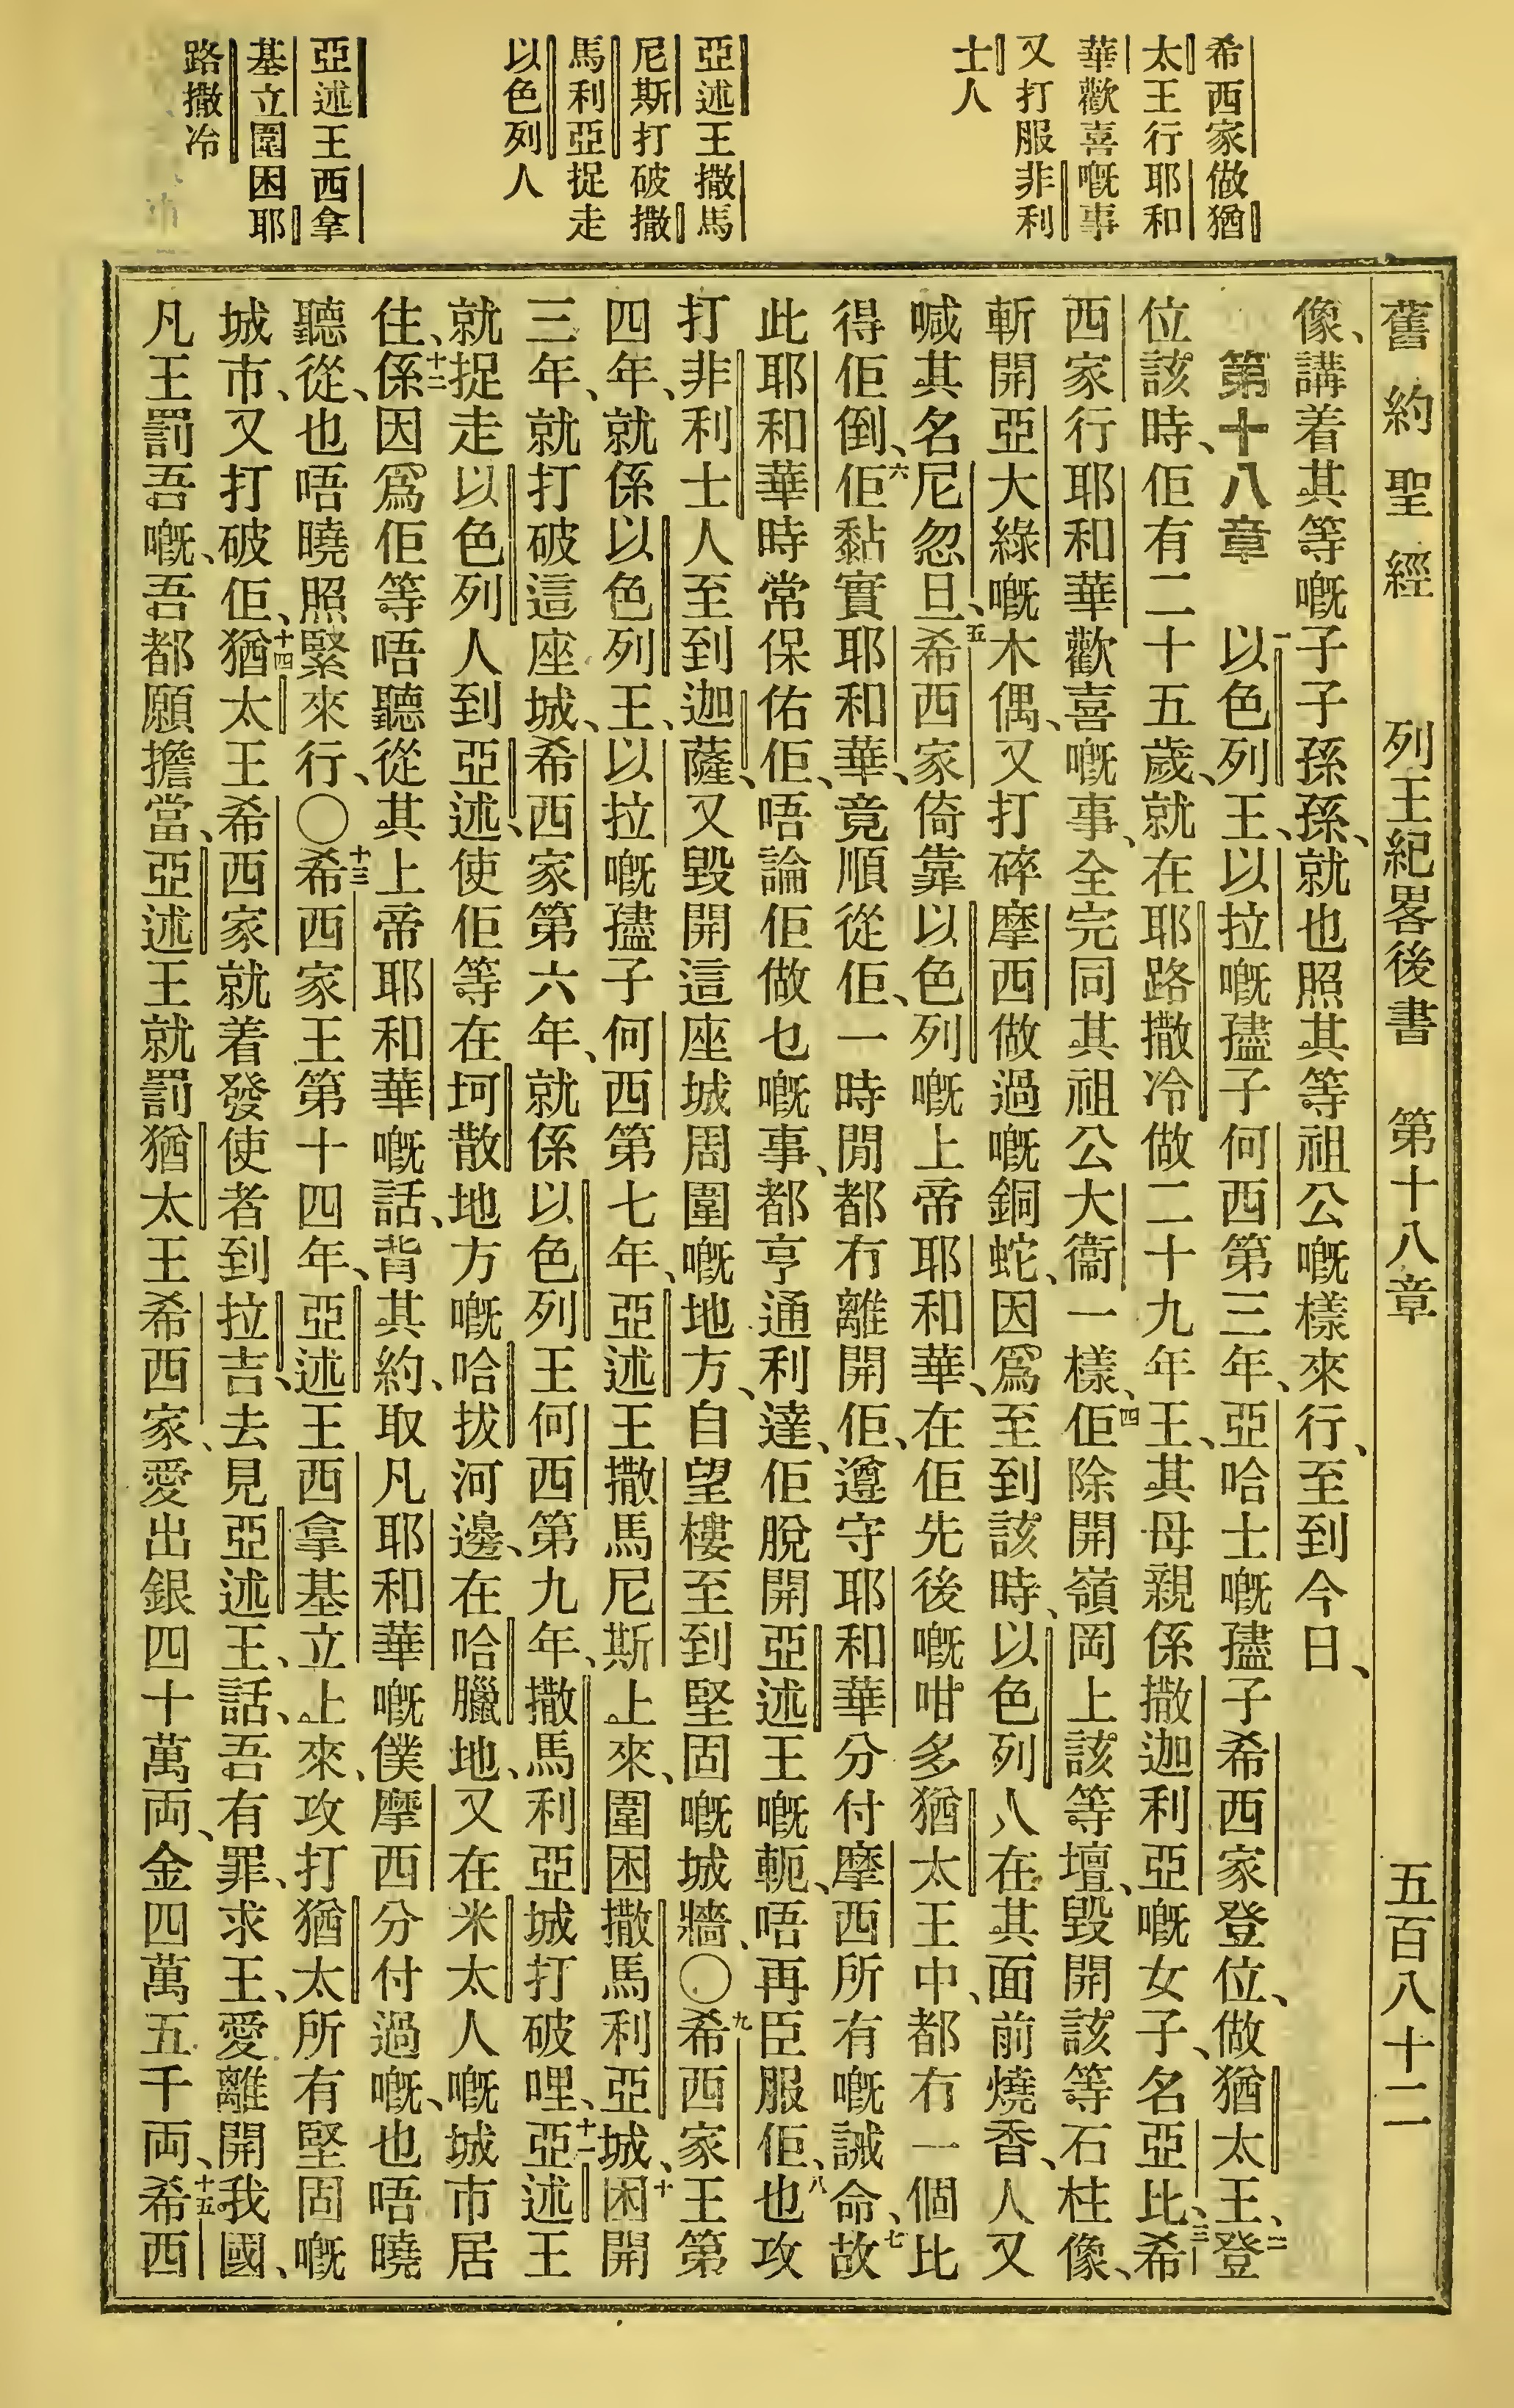 希西家做猶
太王行耶和
華歡喜嘅事
又打服非利
士人
亞述王撒馬
尼斯打破撒
馬利亞捉走
以色列人
亞述王西拿
基立圍困耶
路撒冷
舊約聖經 列王紀畧後書 第十八章 五百八十二
像、講着其等嘅子子孫孫、就也照其等祖公嘅樣來行、至到今日、
第十八章 一以色列王、以拉嘅孻子何西第三年、亞哈士嘅孻子希西家登位、做猶太王、二登
位該時、佢有二十五歲、就在耶路撒冷做二十九年王、其母親係撒迦利亞嘅女子、名亞比、三希
西家行耶和華歡喜嘅事、全完同其祖公大衞一樣、四佢除開嶺岡上該等壇、毀開該等石柱像、
斬開亞大綠嘅木偶、又打碎摩西做過嘅銅蛇、因爲至到該時、以色列人在其面前燒香、人又
喊其名尼忽旦、五希西家倚靠以色列嘅上帝耶和華、在佢先後嘅咁多猶太王中、都冇一個比
得佢倒、六佢黏實耶和華、竟順從佢、一時閒都冇離開佢、遵守耶和華分付摩西所有嘅誡命、七故
此耶和華時常保佑佢、唔論佢做乜嘅事、都亨通利達、佢脫開亞述王嘅軛、唔再臣服佢、八也攻
打非利士人至到迦薩、又毀開這座城周圍嘅地方、自望樓至到堅固嘅城牆、〇九希西家王第
四年、就係以色列王、以拉嘅孻子何西第七年、亞述王撒馬尼斯上來、圍困撒馬利亞城、十困開
三年、就打破這座城、希西家第六年、就係以色列王何西第九年、撒馬利亞城打破哩、十一亞述王
就捉走以色列人到亞述、使佢等在坷散地方嘅哈拔河邊、在哈臘地、又在米太人嘅城市居
住、十二係因爲佢等唔聽從其上帝耶和華嘅話、背其約、取凡耶和華嘅僕摩西分付過嘅、也唔曉
聽從、也唔曉照緊來行、〇十三希西家王第十四年、亞述王西拿基立上來、攻打猶太所有堅固嘅
城市、又打破佢、十四猶太王希西家就着發使者到拉吉、去見亞述王、話、吾有罪、求王、愛離開我國、
凡王罰吾嘅、吾都願擔當、亞述王就罰猶太王希西家、愛出銀四十萬両、金四萬五千両、十五希西